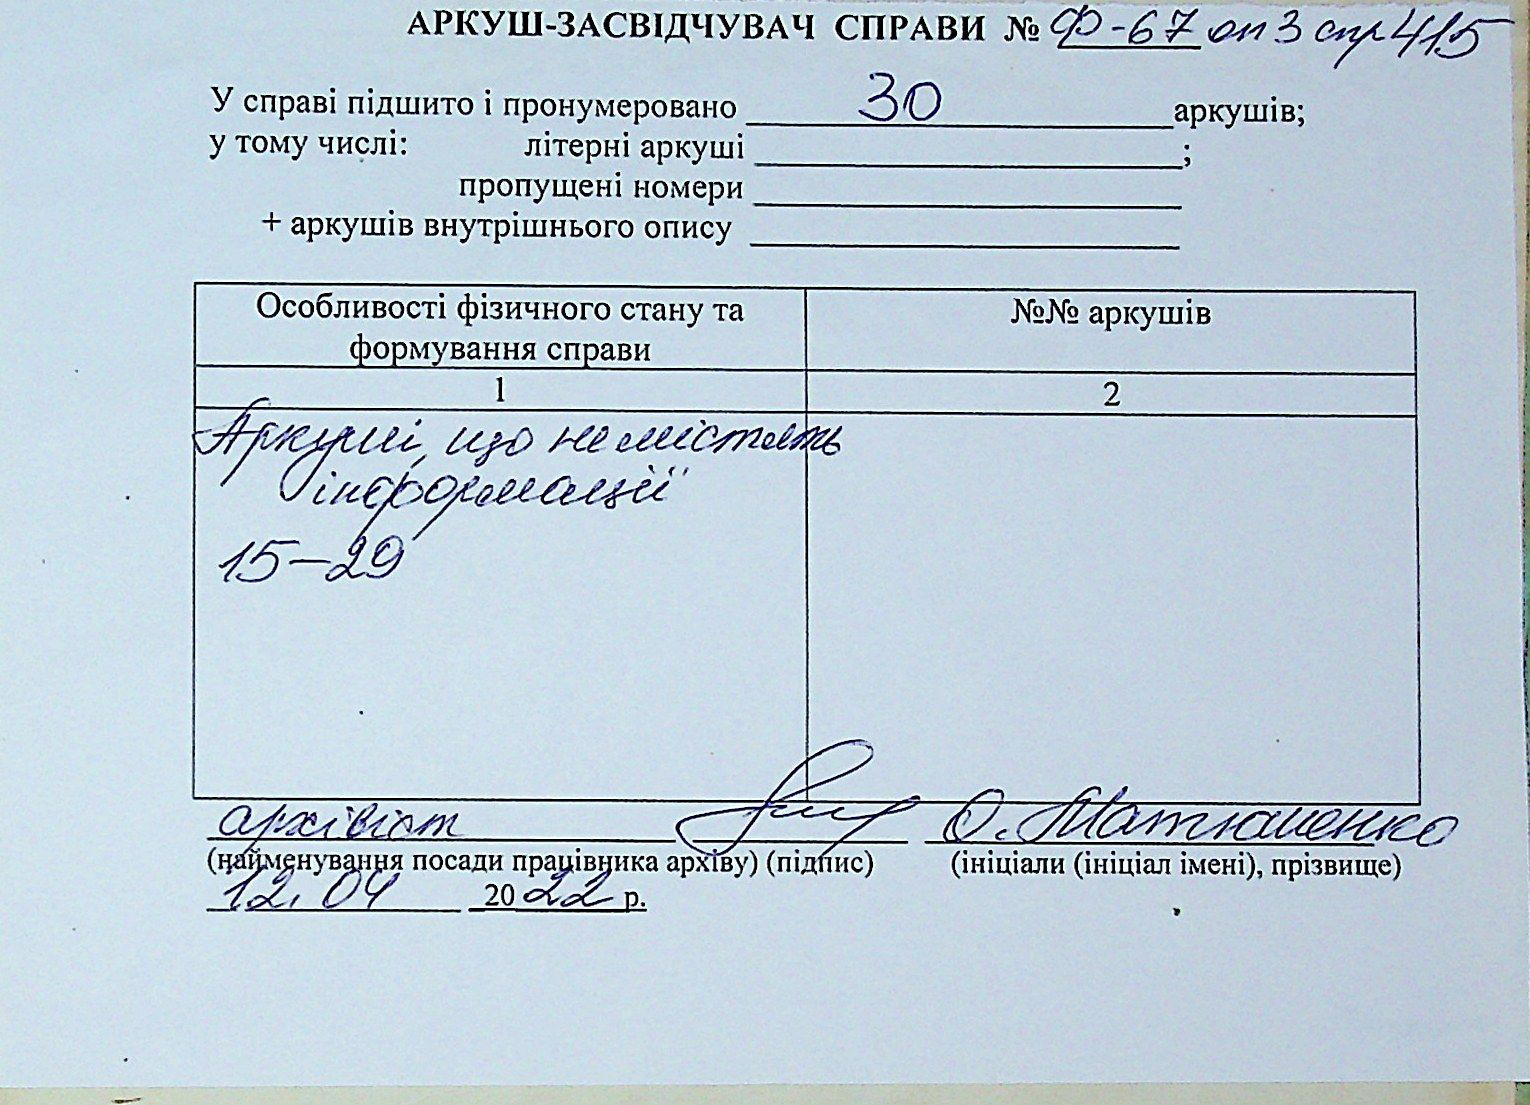 АРКУШ-ЗАСВІДЧУВАЧ СПРАВИ № Ф-67 оп 3 спр 415
У справі підшито і пронумеровано 30 аркушів;
у тому числі: літерні аркуші ;
пропущені номери
+ аркушів внутрішнього опису
Особливості фізичного стану та формування справи
№№ аркушів
1
2
Аркуші, що не містять
інформації
15-29
архівіст О. Матюшенко
(найменування посади працівника архіву) (підпис) (ініціали (ініціал імені), прізвище)
12.04 2022 р.